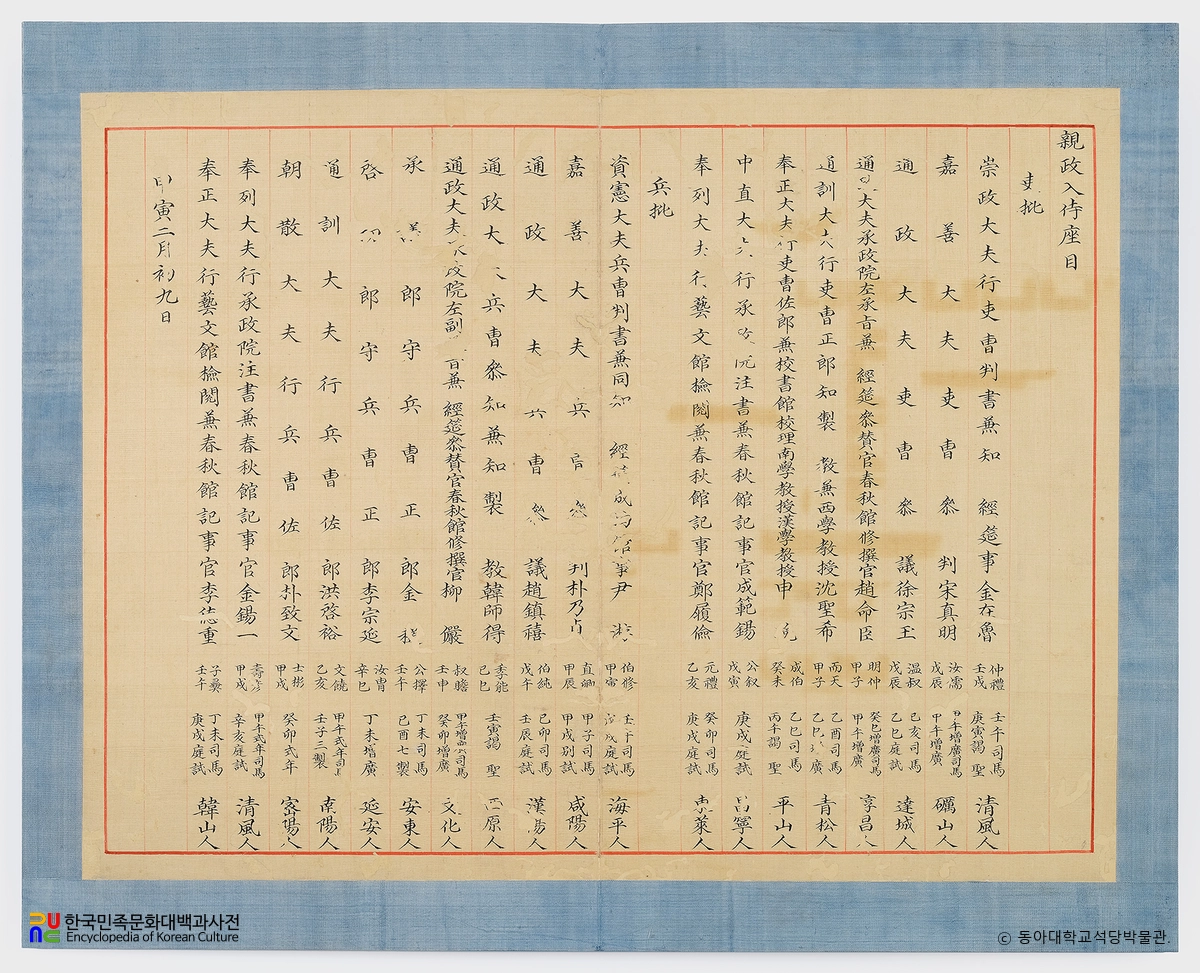 親政入侍座目
吏批
崇政大夫行吏曹判書兼知 經筵事金在魯 仲禮 壬戌 壬午司馬 庚寅謁聖 清風人
嘉善大夫吏曹參判宋真明 汝濡 戊辰 甲午增廣司馬 甲午增廣 礪山人
通政大夫吏曹參議徐宗玉 温叔 戊辰 乙亥司馬 乙巳庭試 達城人
通 大夫承政院左承旨兼 經筵參贊官春秋館修撰官趙命臣 明仲 甲子 癸巳增廣司馬 甲午增廣 享昌
通訓大夫行吏曹正郎知製 教兼西學教授沈聖希 而天 甲子 乙酉司馬 乙巳 廣 青松人
奉正大夫行吏曹佐郎兼校書館校理南學教授漢學教授申 成伯 癸未 乙巳司馬 丙午謁聖 平山人
中直大夫行承政院注書兼春秋館記事官成範錫 公叙 戊寅 庚戌庭試 昌寧人
奉列大夫行藝文館檢閱兼春秋館記事官鄭履儉 元禮 乙亥 癸卯司馬 庚戌庭試 東萊人
兵批
資憲大夫兵曹判書兼同知 經筵成均館事尹 游 伯修 甲寅 壬午司馬 戊庭試 海平人
嘉善大夫兵曹參判朴乃貞 直卿 甲辰 甲子司馬 甲戌別試 咸陽人
通政大夫兵曹參議趙鎮禧 伯純 戊午 己卯司馬 壬辰庭試 漢陽人
通政大夫兵曹參知兼知製 教韓師得 季能 己巳 壬寅謁聖 西原人
通政大夫承政院左副承旨兼 經筵參贊官春秋館修撰官柳 儼 叔瞻 壬申 甲午增廣司馬 癸卯增廣 文化人
承議郎守兵曹正郎金 公擇 壬午 丁未司馬 己酉七製 安東人
啓 郎守兵曹正郎李宗延 汝胄 辛巳 丁未增廣 延安人
通訓大夫行兵曹佐郎洪啓裕 文饒 乙亥 甲午式年司馬 壬子三製 南陽人
朝散大夫行兵曹佐郎朴致文 士彬 甲戌 癸卯式年 密陽人
奉列大夫行承政院注書兼春秋館記事官金錫一 壽彦 甲戌 甲午式年司馬 辛亥庭試 清風人
奉正大夫行藝文館檢閱兼春秋館記事官李德重 子彝 壬午 丁未司馬 庚戌庭試 韓山人
甲寅二月初九日
한국민족문화대백과사전
Encyclopedia of Korean Culture
© 동아대학교석당박물관.